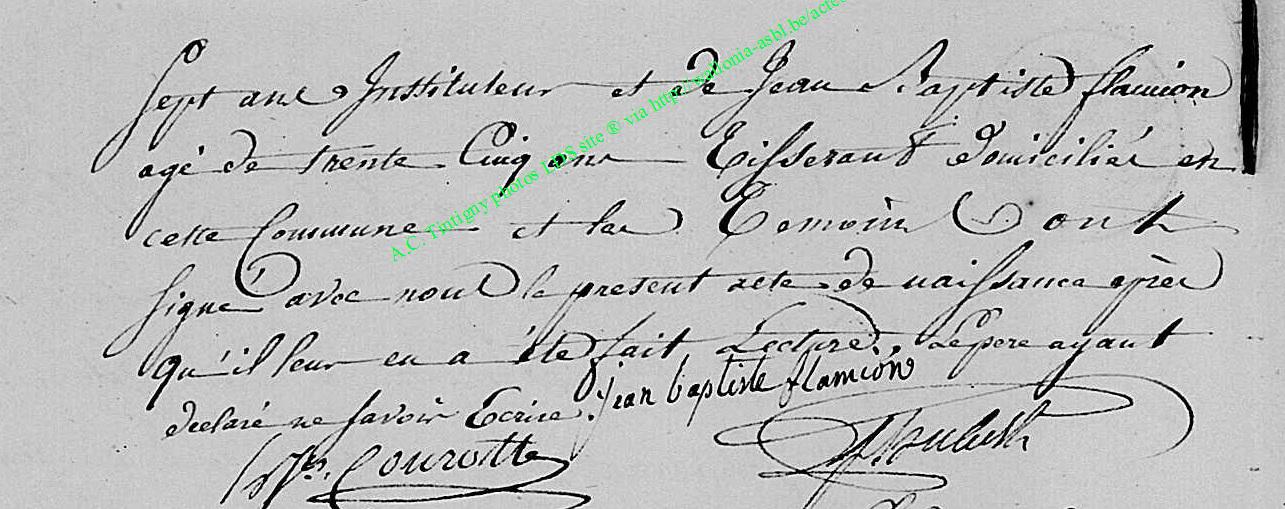 Sept ans Instituteur et de Jean Baptiste flamion
agé de trente Cinq ans Tisserant domiciliés en
cette Commune et les Temoins Ont
signé avec nous le present acte de naissance après
qu'il leur en a été fait Lecture, Le pere ayant
declaré ne savoir Ecrire. jean baptiste flamion
Courotte
A.C. Tintigny photos LDS site ® via http://